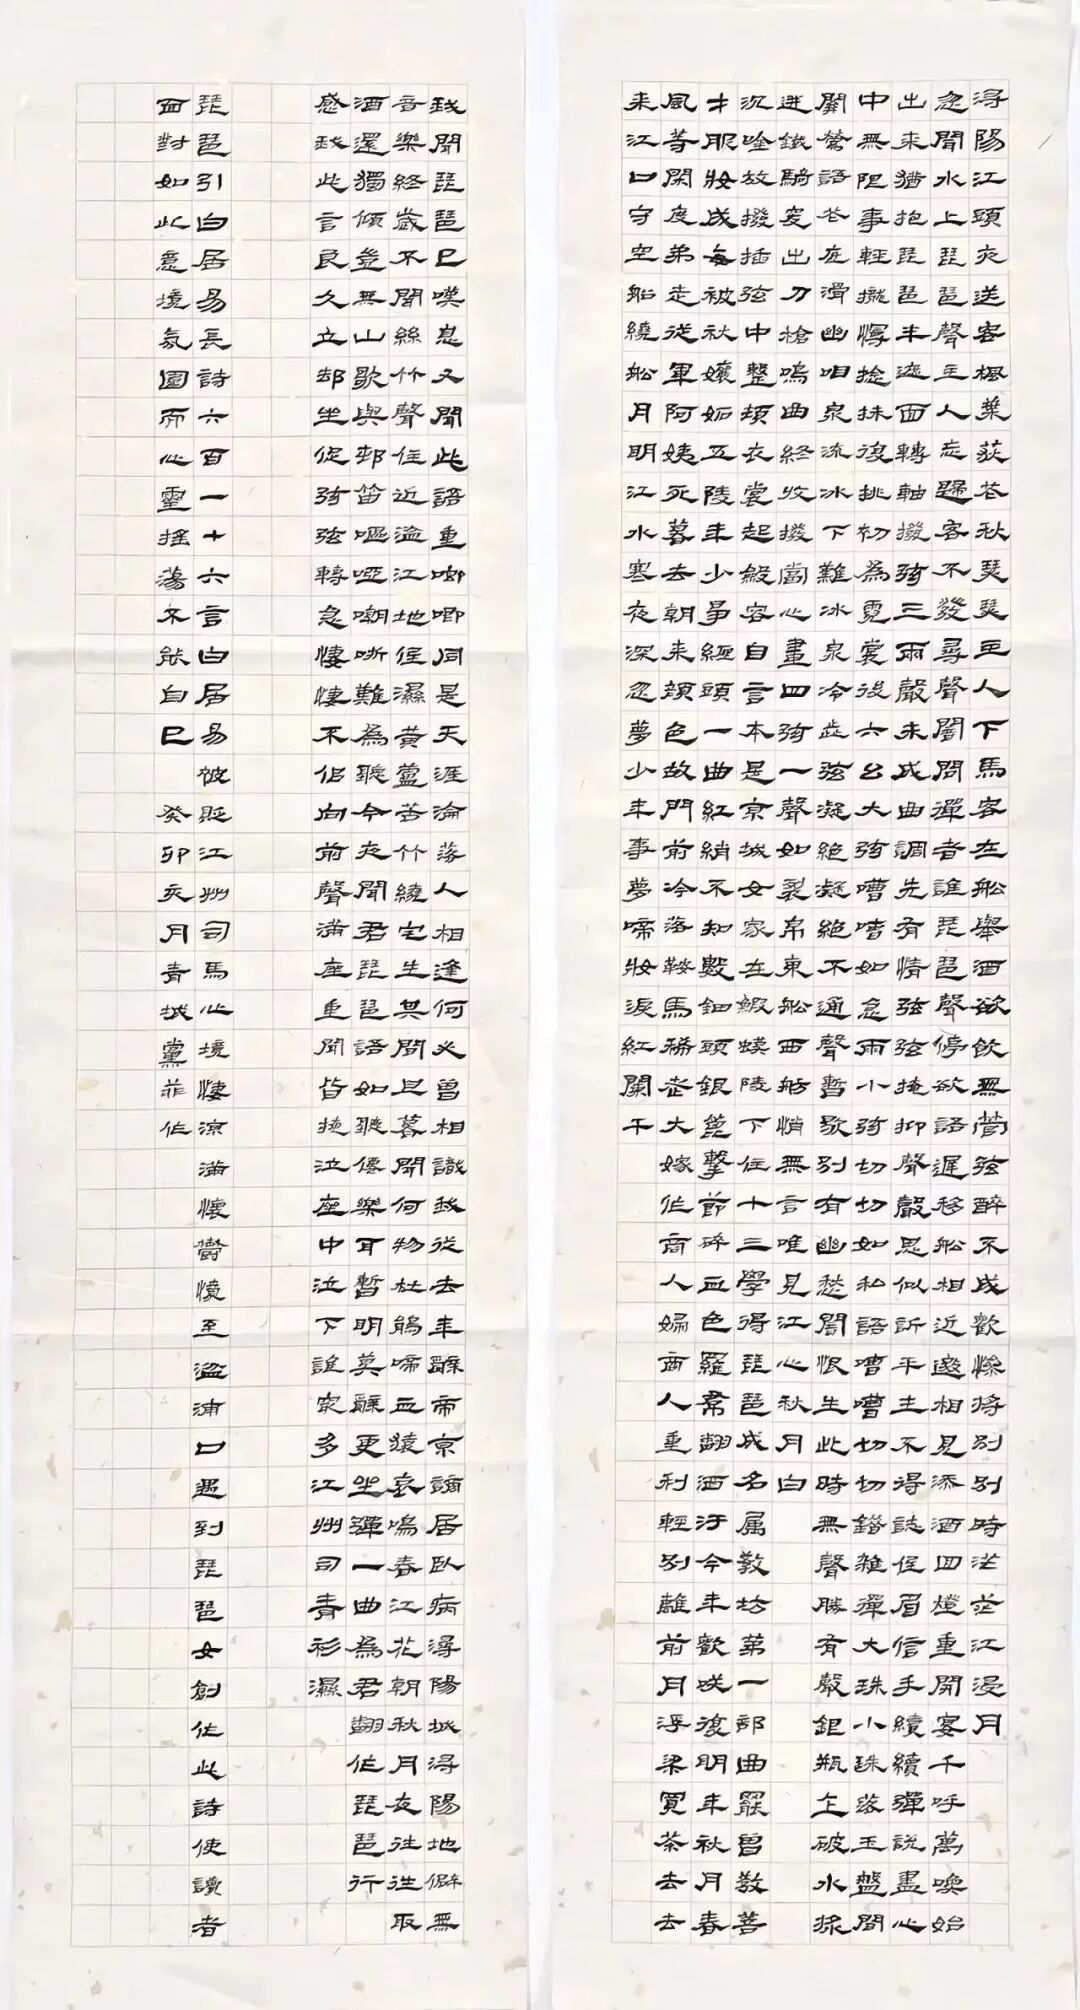 潯陽江頭夜送客楓葉荻花秋瑟瑟主人下馬客在船舉酒欲飲無管弦醉不成歡慘將別別時茫茫江浸月
忽聞水上琵琶聲主人忘歸客不發尋聲闇問彈者誰琵琶聲停欲語遲移船相近邀相見添酒回燈重開宴千呼萬喚始
出來猶抱琵琶半遮面轉軸撥弦三兩聲未成曲調先有情弦弦掩抑聲聲思似訴平生不得誌低眉信手續續彈說盡心
中無限事輕攏慢撚抹復挑初為霓裳後六幺大弦嘈嘈如急雨小弦切切如私語嘈嘈切切錯雜彈大珠小珠落玉盤間
關鶯語花底滑幽咽泉流冰下難冰泉冷澀弦凝絕凝絕不通聲暫歇別有幽愁闇恨生此時無聲勝有聲銀瓶乍破水漿
迸鐵騎突出刀槍鳴曲終收撥當心畫四弦一聲如裂帛東船西舫悄無言唯見江心秋月白
沉吟放撥插弦中整頓衣裳起斂容自言本是京城女家在蝦蟆陵下住十三學得琵琶成名属教坊第一部曲罷曾教善
才服妝成每被秋孃妬五陵年少爭纏頭一曲紅綃不知數鈿頭銀篦擊節碎血色羅裙翻酒汙今年歡笑復明年秋月春
風等閑度弟走從軍阿姨死暮去朝來顏色故門前冷落鞍馬稀老大嫁作商人婦商人重利輕別離前月浮梁買茶去去
來江口守空船繞船月明江水寒夜深忽夢少年事夢啼妝淚紅闌干
我聞琵琶已嘆息又聞此語重唧唧同是天涯淪落人相逢何必曾相識我從去年辭帝京謫居臥病潯陽城潯陽地僻無
音樂終歲不聞絲竹聲住近湓江地低濕黃蘆苦竹繞宅生其間旦暮聞何物杜鵑啼血猿哀鳴春江花朝秋月夜往往取
酒還獨傾豈無山歌與邨笛嘔啞嘲哳難為聽今夜聞君琵琶語如聽僊樂耳暫明莫辭更坐彈一曲為君翻作琵琶行
感我此言良久立却坐促弦弦轉急悽悽不似向前聲滿座重聞皆掩泣座中泣下誰最多江州司青衫濕
琵琶引白居易長詩六百一十六言白居易被貶江州司馬心境悽涼滿懷鬱憤至湓浦口遇到琵琶女創作此詩使讀者
面對如此意境氛圍而心靈搖蕩不能自已 癸卯亥月青城黨菲作